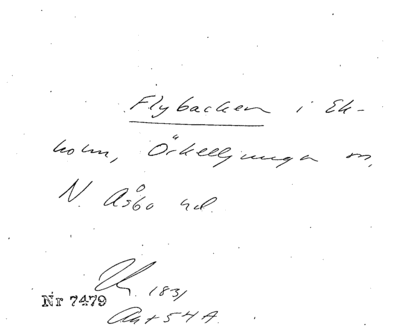 Flybacken i Ek-
holm, Örkelljunga sn,
N. Åsbo hd.
1831
Nr 7479
Akt 54 A